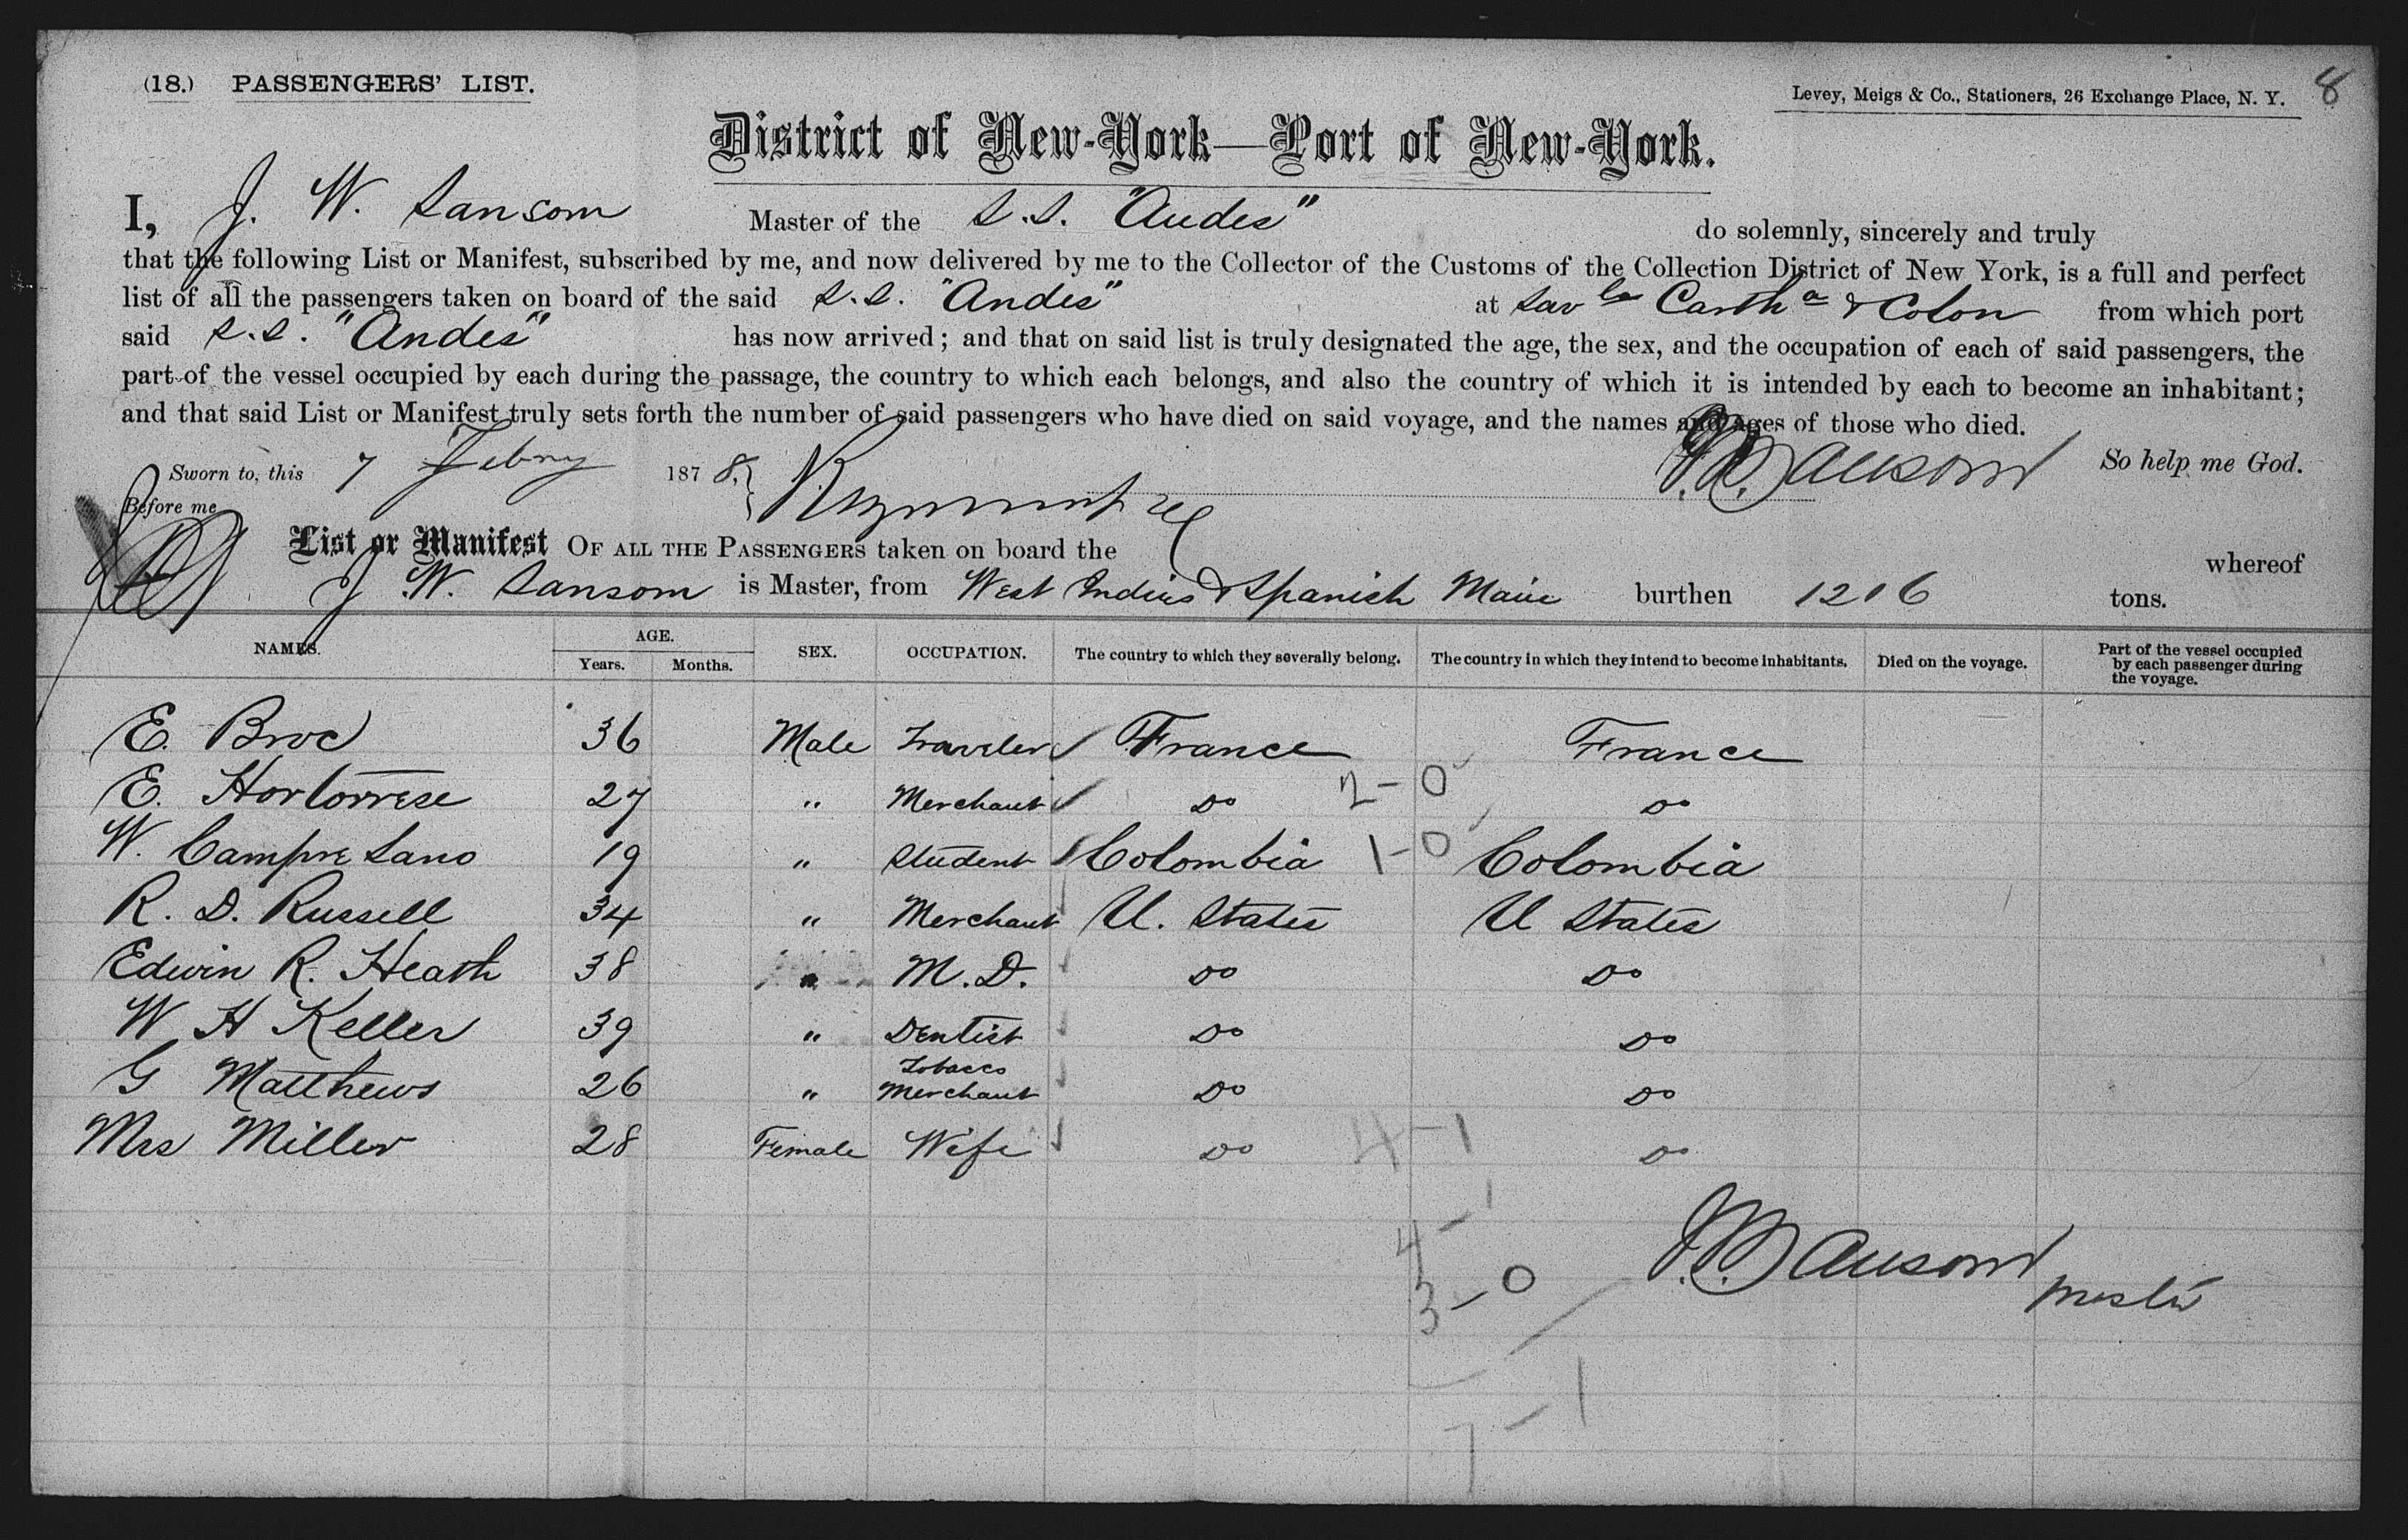 (18.) PASSENGERS' LIST.
Levey, Meigs & Co., Stationers, 26 Exchange Place, N. Y. 8
District of New-York—Port of New-York.
I, J. W. Sansom Master of the S.S. "Andes" do solemnly, sincerely and truly
that the following List or Manifest, subscribed by me, and now delivered by me to the Collector of the Customs of the Collection District of New York, is a full and perfect
list of all the passengers taken on board of the said S.S. "Andes" at Sav la Carth a & Colon from which port
said S.S. "Andes" has now arrived; and that on said list is truly designated the age, the sex, and the occupation of each of said passengers, the
part of the vessel occupied by each during the passage, the country to which each belongs, and also the country of which it is intended by each to become an inhabitant;
and that said List or Manifest truly sets forth the number of said passengers who have died on said voyage, and the names and ages of those who died.
Sworn to, this 7 Febry 1878. J. W. Sansom So help me God.
Before me
List or Manifest OF ALL THE PASSENGERS taken on board the whereof
J W. Sansom is Master, from West Indies & Spanish Main burthen 1206 tons.
NAMES. AGE. Years. Months. SEX. OCCUPATION. The country to which they severally belong. The country in which they intend to become inhabitants. Died on the voyage. Part of the vessel occupied by each passenger during the voyage.
E. Broc 36 Male Traveler France France
E. 27 " Merchant Do 2-0 Do
W. 19 " Student Colombia 1-0 Colombia
R. D. Russell 34 " Merchant U. States U States
Edwin R. Heath 38 " M.D. Do Do
W H Keller 39 " Dentist Do Do
G Matthews 26 " Tobacco Merchant Do Do
Mrs Miller 28 Female Wife Do 4-1 Do
4-1
3-0
J. W. Sansom Master
7-1